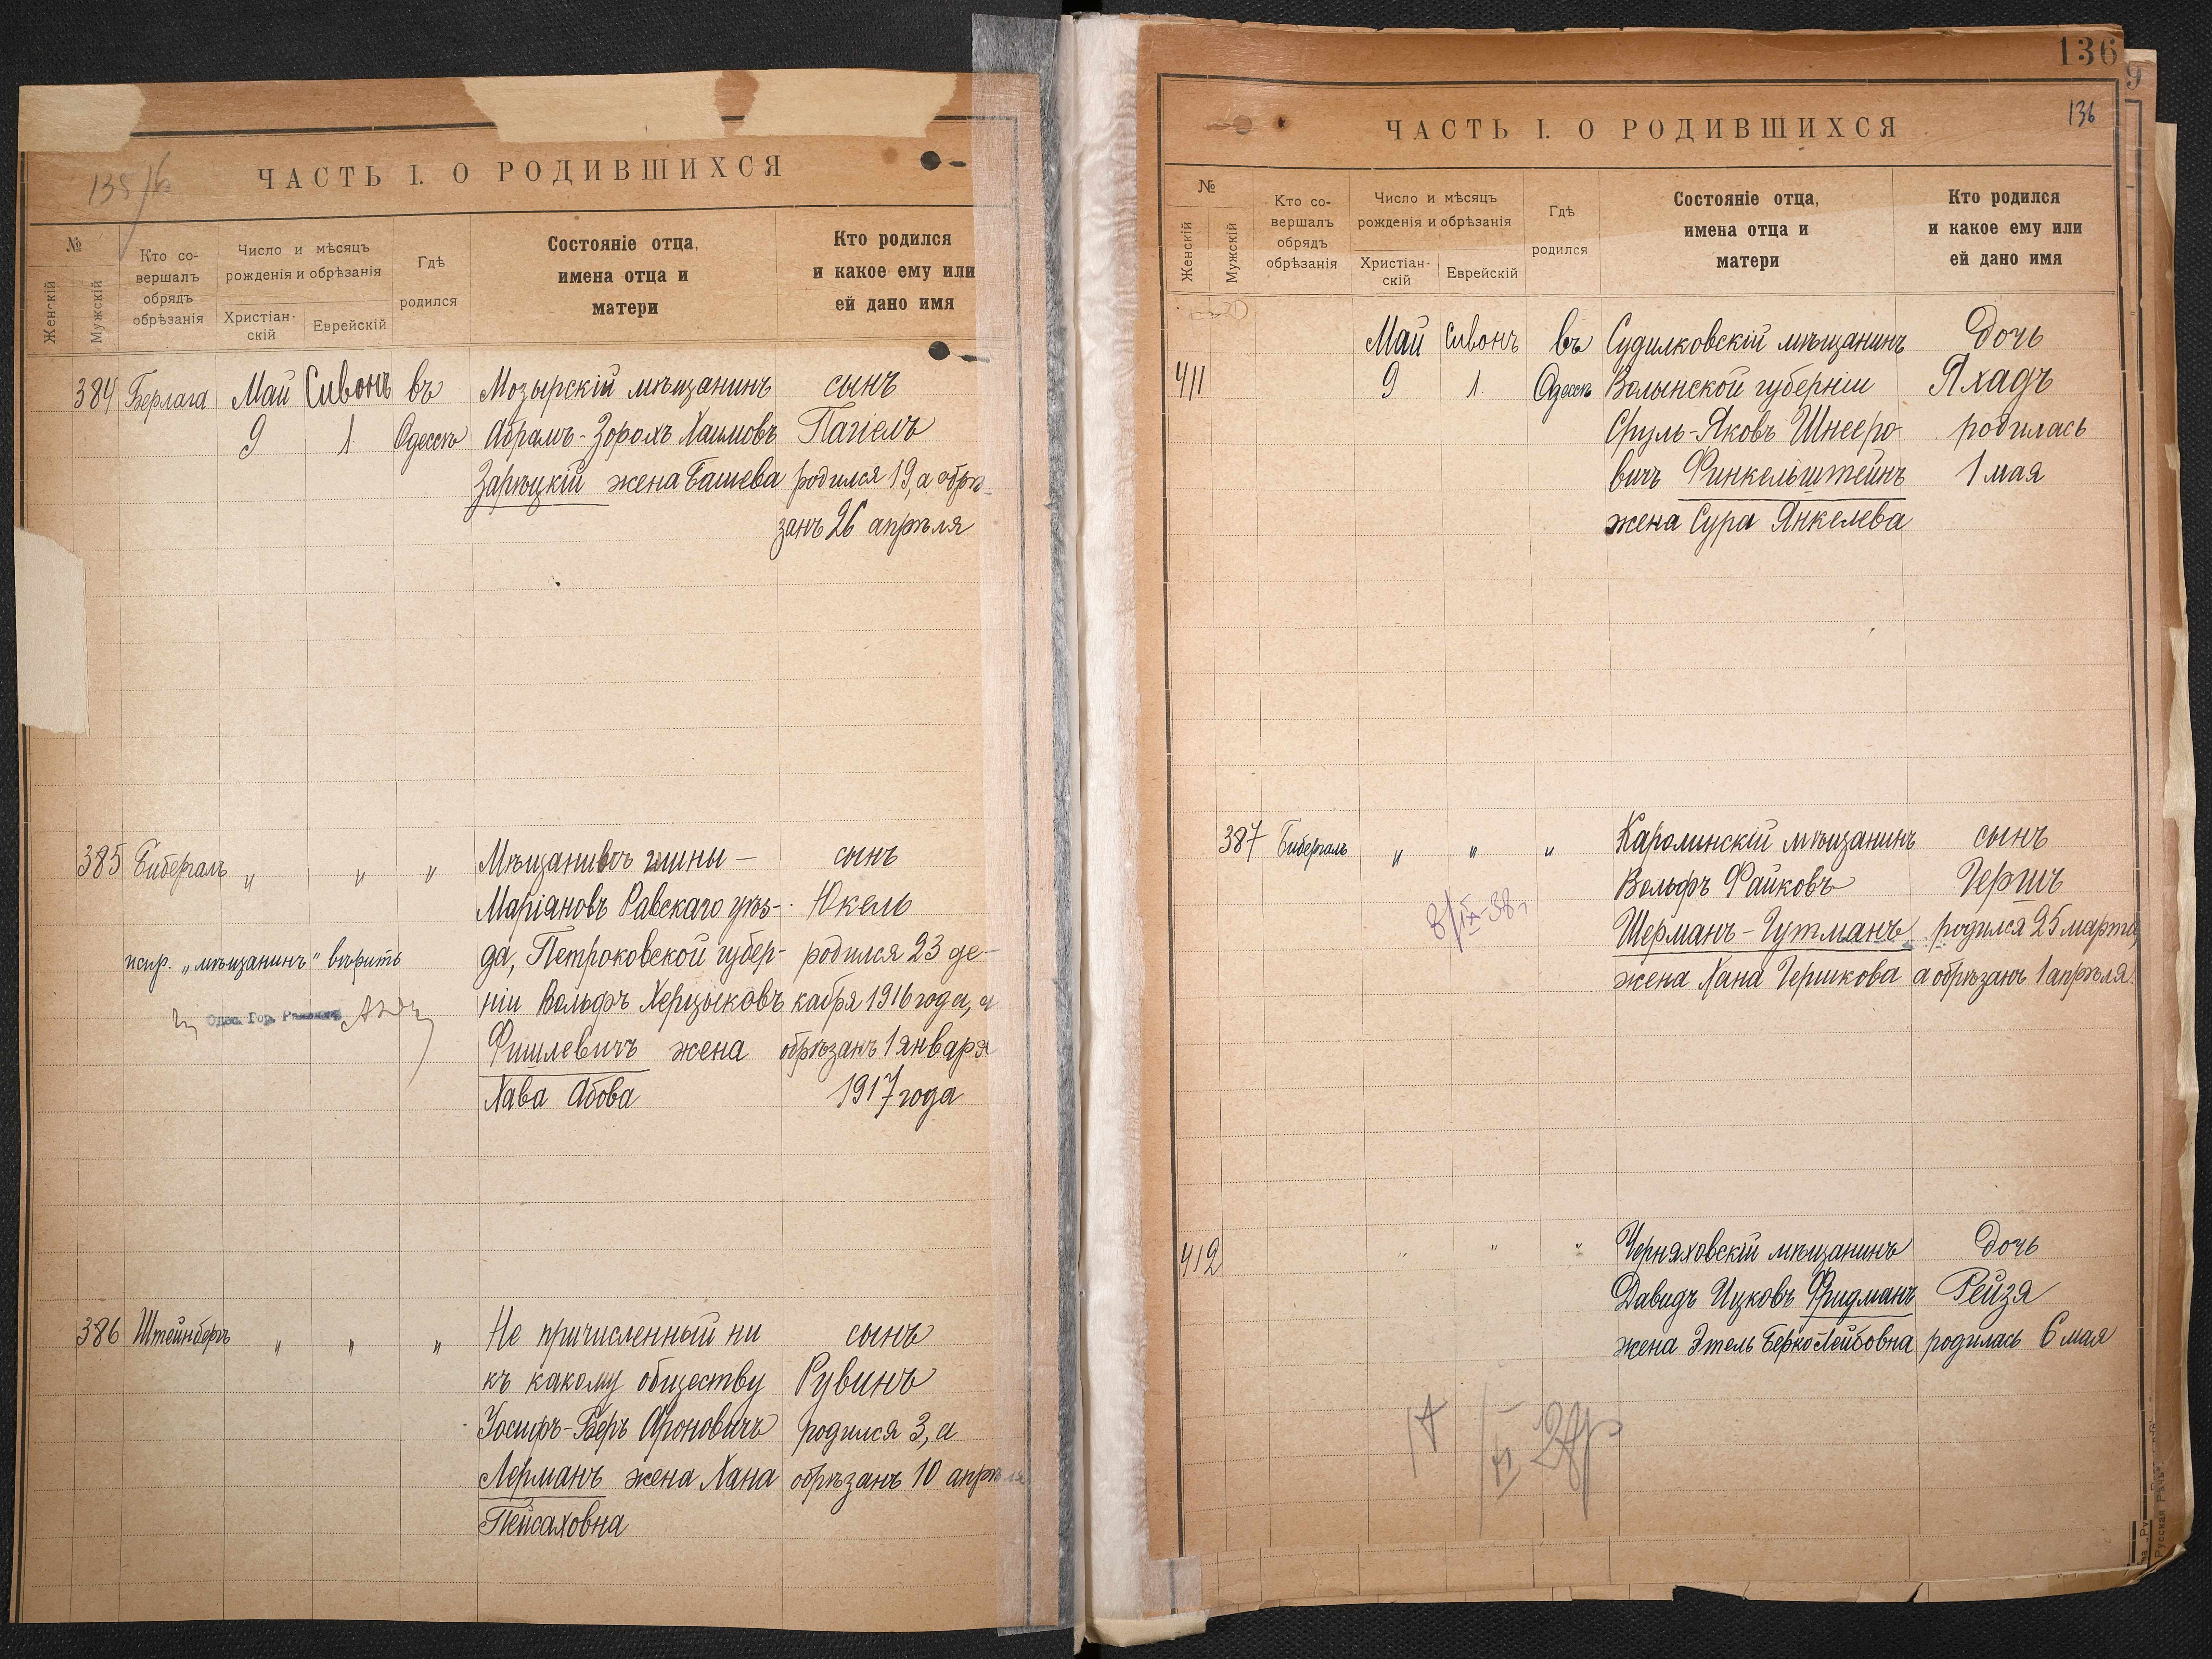 135
ЧАСТЬ I. О РОДИВШИХСЯ
№
Женскій
Мужскій
Кто со-
вершалъ
обрядъ
обрѣзанія
Число и мѣсяцъ
рожденія и обрѣзанія
Христіан-
скій
Еврейскій
Гдѣ
родился
Состояніе отца,
имена отца и
матери
Кто родился
и какое ему или
ей дано имя
384 Берлага Май Сивонъ въ Мозырскій мѣщанинъ сынъ
9 1 Одессѣ Абрамъ-Зорохъ Хаимовъ Пагіелъ
Зарѣцкій жена Башева родился 19, а обрѣ-
занъ 26 апрѣля
385 Бибергалъ " " " Мѣщанинъ гмины — сынъ
Маріановъ Равскаго уѣз- Юкель
исир. „мѣщанинъ" вѣрить да, Петроковской губер- родился 23 де-
ніи Вольфъ Херцыковъ кабря 1916 года, а
Одес. Гор. Раввинъ
Фишлевичъ жена обрѣзанъ 1 января
Хава Абова 1917 года
386 Штейнбергъ " " " Не причисленный ни сынъ
къ какому обществу Рувинъ
Іосифъ-Беръ Ароновичъ родился 3, а
Лерманъ жена Хана обрѣзанъ 10 апрѣля
Пейсаховна
136
136
9
ЧАСТЬ I. О РОДИВШИХСЯ
№
Женскій
Мужскій
Кто со-
вершалъ
обрядъ
обрѣзанія
Число и мѣсяцъ
рожденія и обрѣзанія
Христіан-
скій
Еврейскій
Гдѣ
родился
Состояніе отца,
имена отца и
матери
Кто родился
и какое ему или
ей дано имя
Май Сивонъ въ Судилковскій мѣщанинъ Дочь
411 9 1 Одессѣ Волынской губерніи Яхадъ
Сруль-Яковъ Шнееро- родилась
вичъ Финкельштейнъ 1 мая
жена Сура Янкелева
387 Бибергалъ " " " Каролинскій мѣщанинъ сынъ
Вольфъ Файковъ Гершъ
8/IX-38г Шерманъ-Гутманъ родился 25 марта,
жена Хана Гершкова а обрѣзанъ 1 апрѣля.
412 " " " Черняховскій мѣщанинъ Дочь
Давидъ Ицковъ Фридманъ Рейзя
жена Этель БеркоЛейбовна родилась 6 мая